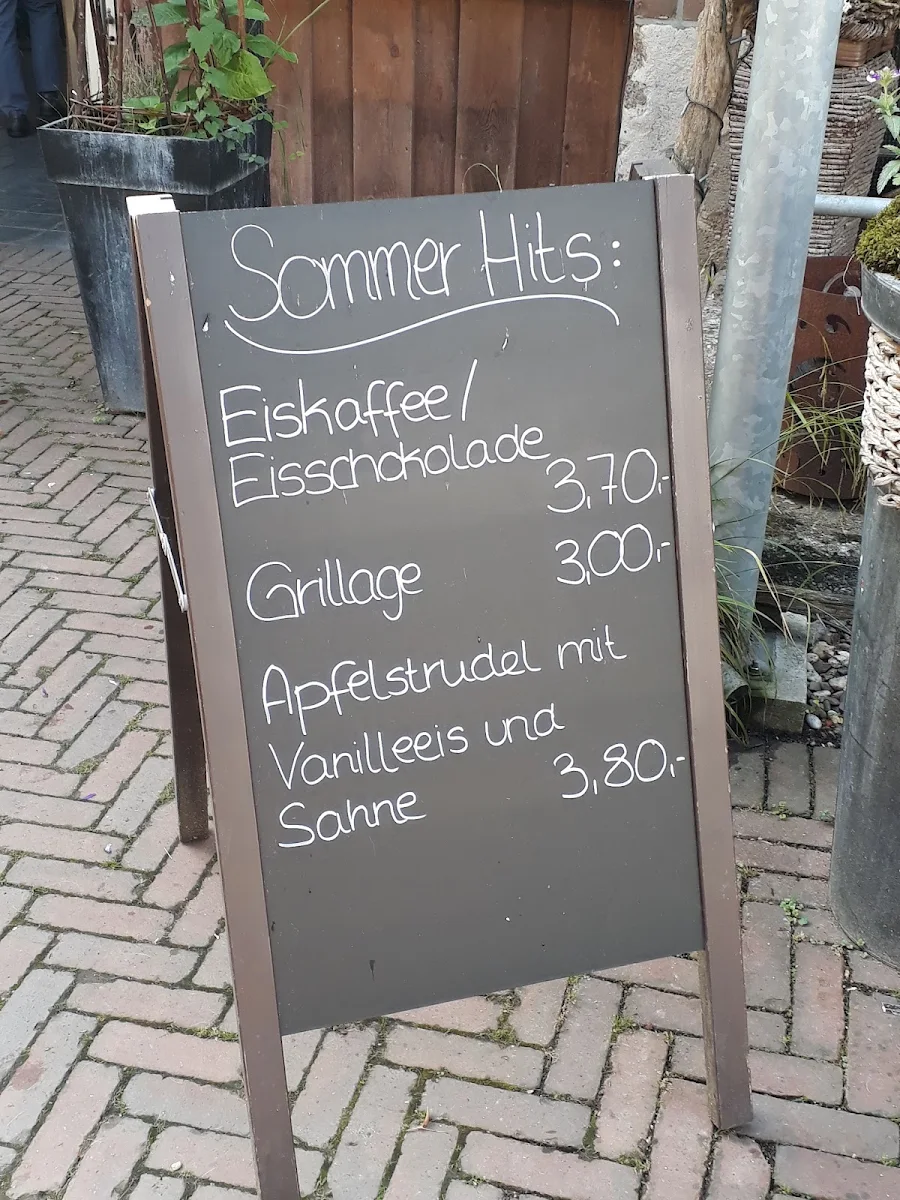 Sommer Hits:
Eiskaffee/
Eisschokolade 3,70,-
Grillage 3,00,-
Apfelstrudel mit
Vanilleeis und
Sahne 3,80,-